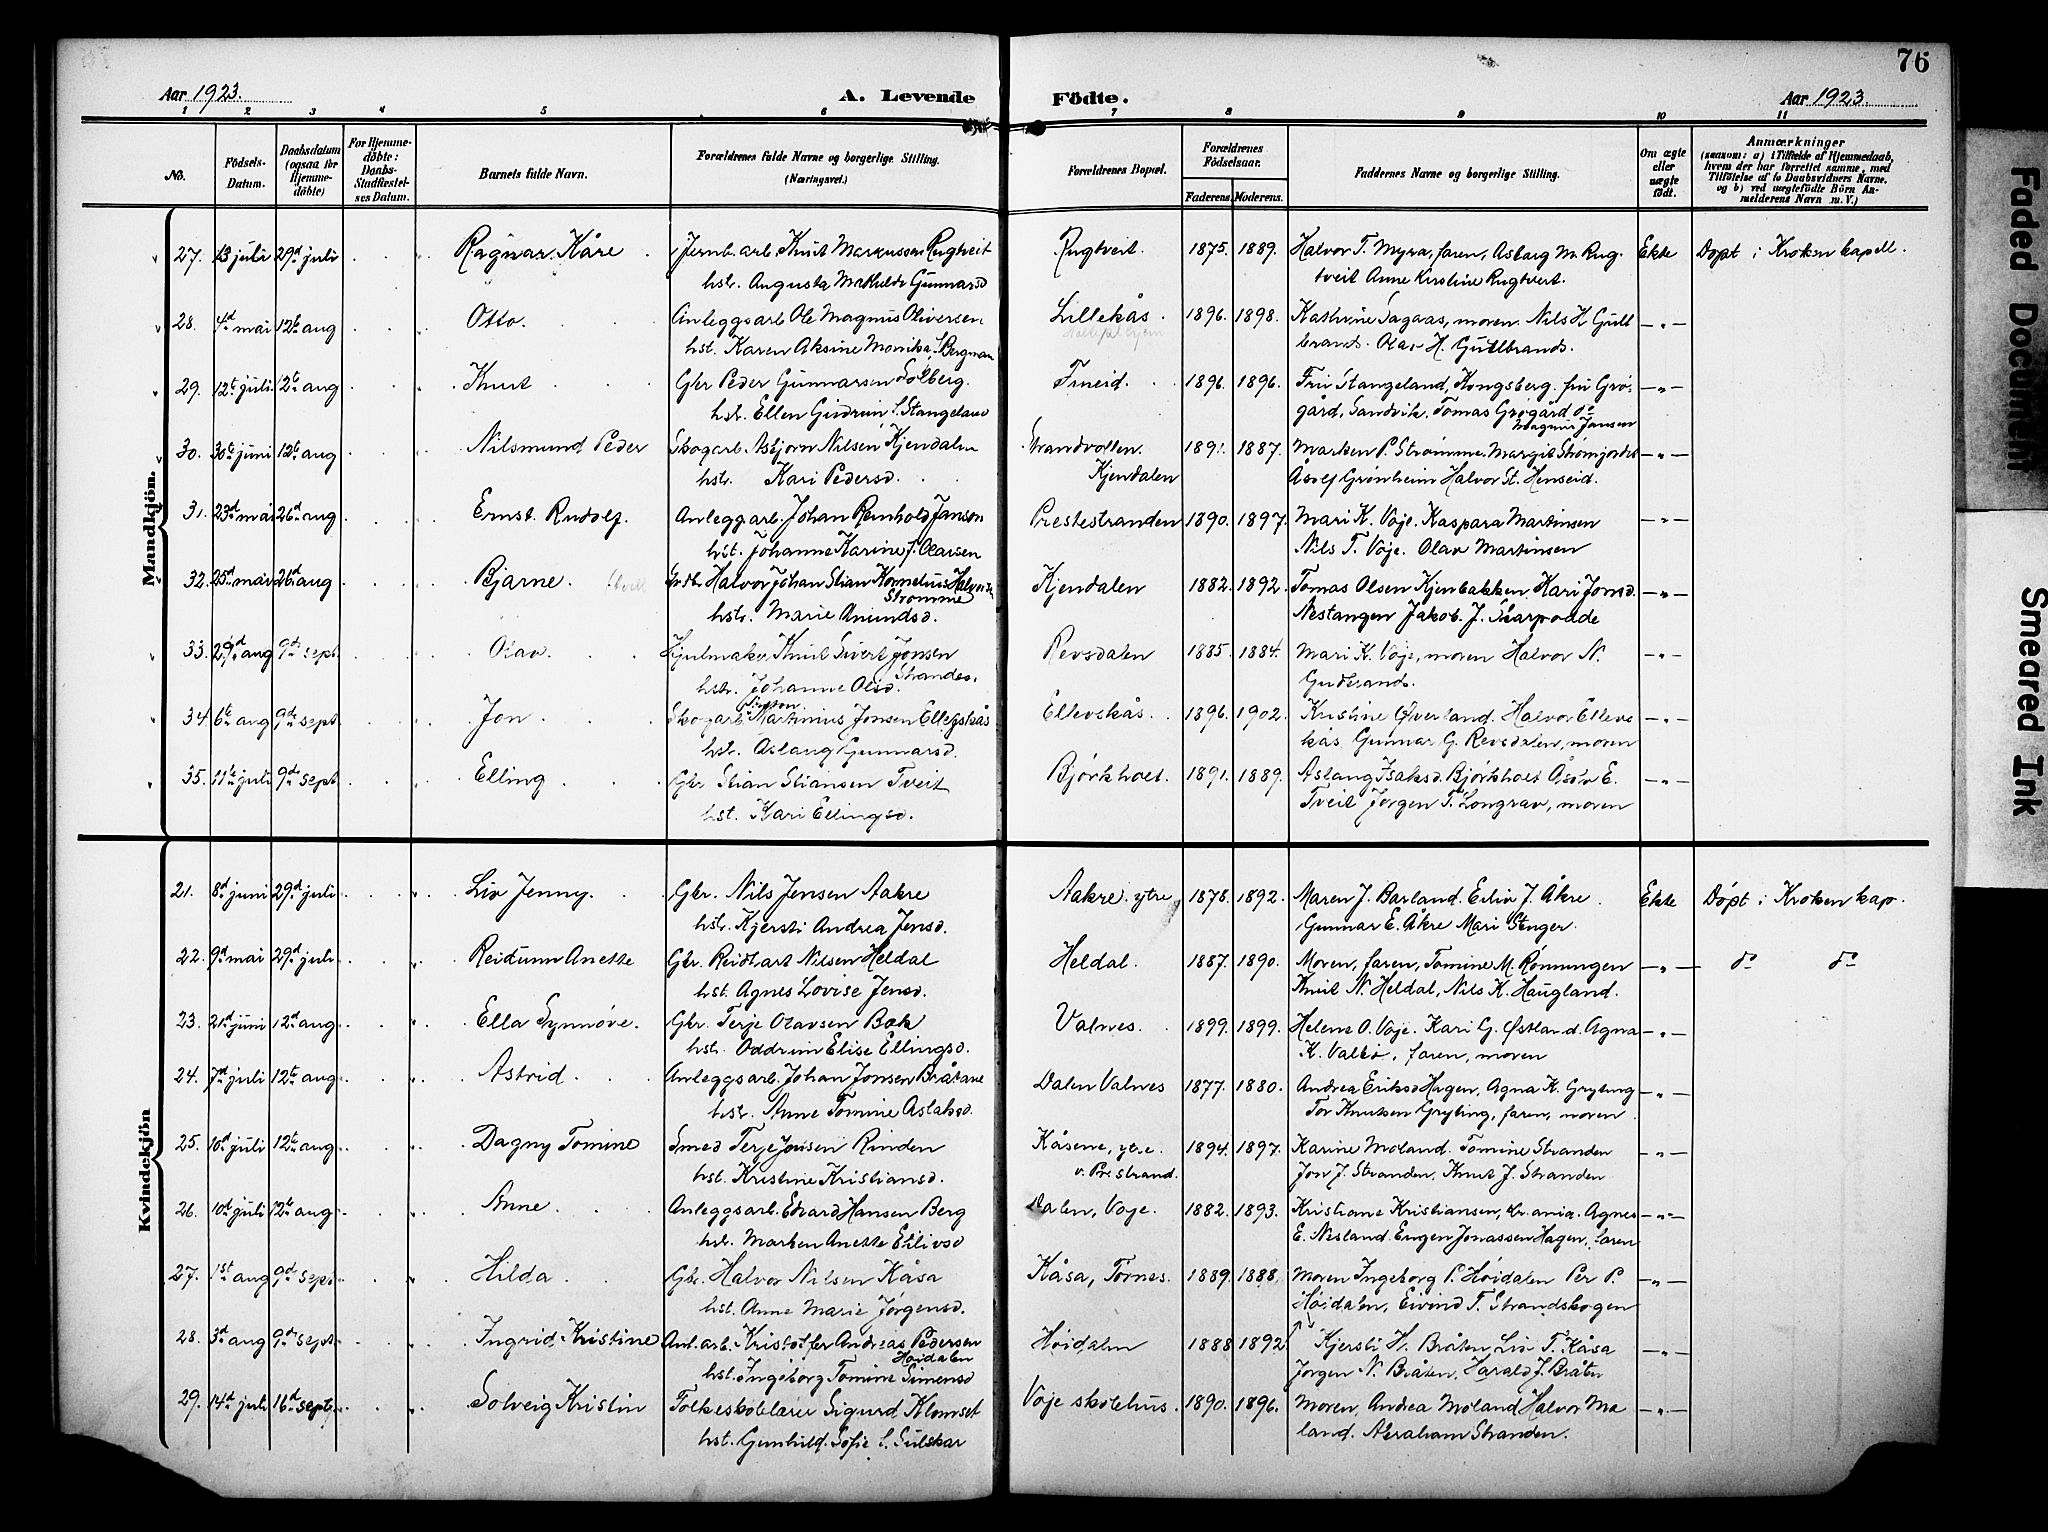 76
Aar 1923.
A. Levende Födte.
Aar 1923.
1 2 3 4 5 6 7 8 9 10 11
No.
Födsels-Datum.
Daabsdatum (ogsaa for Hjemmedöbte)
For Hjemmedöbte: Daabs-Stadfæstelses Datum.
Barnets fulde Navn.
Forældrenes fulde Navne og borgerlige Stilling.
(Næringsvei.)
Forældrenes Bopæl.
Forældrenes Födselsaar.
Faderens. Moderens.
Faddernes Navne og borgerlige Stilling.
Om ægte eller uægte födt.
Anmærkninger
(saasom: a) i Tilfælde af Hjemmedaab, hvem der har forrettet samme, med Tilföielse af to Daabsvidners Navne, og b) ved uægtefödte Börn Anmelderens Navn m. V.)
Mandkjön.
27. 13 juli 29d juli Ragnar Kåre Jernb.arb. Knut Markussen Rugtveit Rugtveit. 1875. 1889. Halvor T. Myra, faren, Asborg M. Rug- Ekte Døpt i Kroken kapell.
hstr. Augusta Mathilde Gunnarsd tveit Anne Kirstine Rugtveit.
28. 4d mai 12te aug Otto. Anleggsarb Ole Magnus Oliversen Lillekås. 1896. 1898. Kathrine Sagaas, moren. Nils H Gull -"-
hst. Karen Aksine Monika f. Bergman brands. Olav H. Gullbrands.
29. 12te juli 12te aug Knut Gbr Peder Gunnarsen Solberg. Fineid. 1896. 1896. Fru Stangeland, Kongsberg. fru Grø- -"-
hst. Ellen Gudrun f. Stangeland gård, Sandvik. Tomas Grøgård do
Magnus Jansen
30. 30te juni 12te aug Nilsmund Peder Skogarb. Asbjørn Nilsen Kjendalen Strandvollen. 1891. 1887. Marken P. Strømme. Margit Strømjordet -"-
hstr. Kari Pedersd. Kjendalen Åsolf Grønheim Halvor St. Henseid.
31. 23d mai 26d aug Ernst Rudolf. Anleggarb. Johan Reinhold Janson Prestestranden 1890. 1897. Mari K. Voje. Kaspara Martinsen -"-
hst. Johanne Karine f. Olaisen Nils T. Voje. Olav Martinsen
32. 25d mai 26d aug Bjarne. Halvor Johan Stian Kornelius Halvorsen Kjendalen 1882. 1892. Tomas Olsen Kjenbakken. Kari Jonsd. -"-
Strømme
hstr. Marie Amundsd. Nestangen Jakob. J. Skarpodde
33. 29d aug 9de sept. Olav. Hjulmaker Knut Sivert Jonsen Revsdalen 1885. 1884. Mari K. Voje, moren Halvor N. -"-
Strandes.
hstr. Johanne Olsd. Gudbrands.
34. 6te aug 9de sept Jon. Skogarb Martinius Jonsen Ellevskås Ellevskås. 1896. 1902. Kristine Øverland. Halvor Ellevs -"-
hst. Aslaug Gunnarsd. kås Gunnar G. Revsdalen, moren
35. 11te juli 9de sept Elling Gbr Stian Stiansen Tveit Bjørkholt. 1891. 1889. Aslaug Isaksd. Bjørkholt E. -"-
hst. Kari Ellingsd. Tveit Jørgen T. Longrav, moren
Kvindekjön
21. 8d juni 29d juli Liv Jenny. Gbr. Nils Jensen Aakre Aakre ytre 1878. 1892. Maren J. Barland. Eiliv J. Åkre. Ekte Døpt i Kroken kap.
hst. Kjersti Andrea Jensd. Gunnar E. Åkre Mari Stenger
22. 9d mai 29d juli Reidunn Anette Gbr. Reidhart Nilsen Heldal Heldal. 1887. 1890. Moren, faren, Tomine M. Rønningen -"- do do
hst. Agnes Lovise Jensd. Knut N. Heldal, Nils K. Haugland.
23. 21d juni 12d aug Ella Synnøve. Gbr. Terje Olavsen Bak Valnes. 1899. 1899. Helene O. Voje. Kari G. Østland. Agna -"-
hst. Oddrun Elise Ellingsd. K. Valbø, faren, moren
24. 7d juli 12te aug Astrid. Anleggsarb. Johan Jonsen Bråtane Dalen Valnes 1877. 1880. Andrea Eriksd Hagen, Agna K. Gryting -"-
hst. Anne Tomine Aslaksd. Tor Knutsen Gryting, faren, moren
25. 10d juli 12te aug Dagny Tomine Smed Terje Jonsen Rinden Kåsene, ytre. 1894. 1897. Karine Moland. Tomine Stranden -"-
hst. Kristine Kristiansd. v. Prestrand. Jon J. Stranden, Knut J. Stranden
26. 10d juli 12te aug Anne Anleggsarb. Edvard Hansen Berg Dalen, Voje. 1882. 1893. Kristiane Kristiansen, kr.ania. Agnes -"-
hst. Marken Anette Eilivsd E. Nesland. Eugen Jonassen Hagen, faren
27. 1st aug 9d sept Hilda Gbr. Halvor Nilsen Kåsa Kåsa, Tørnes. 1889. 1888. Moren Ingeborg P. Høidalen Per P. -"-
hst. Anne Marie Jørgensd. Høidalen, Eivind T. Strandskogen
28. 3d aug 9de sept Ingrid Kristine Anl.arb. Kristoffer Andreas Pedersen Høidalen 1888 1892 Kjersti H. Bråten, Liv T. Kåsa -"-
Høidalen
hst. Ingeborg Tomine Simensd Jørgen N. Bråten, Harald J. Bråten
29. 14d juli 16d sept Solveig Kristin Folkeskolelærer Sigurd Klomset Voje skolehus. 1890. 1896. Moren, Andrea Moland Halvor Mo -"-
hst. Gunhild. Sofie f. Sulskar land. Abraham Stranden.
Faded Document
Smeared Ink